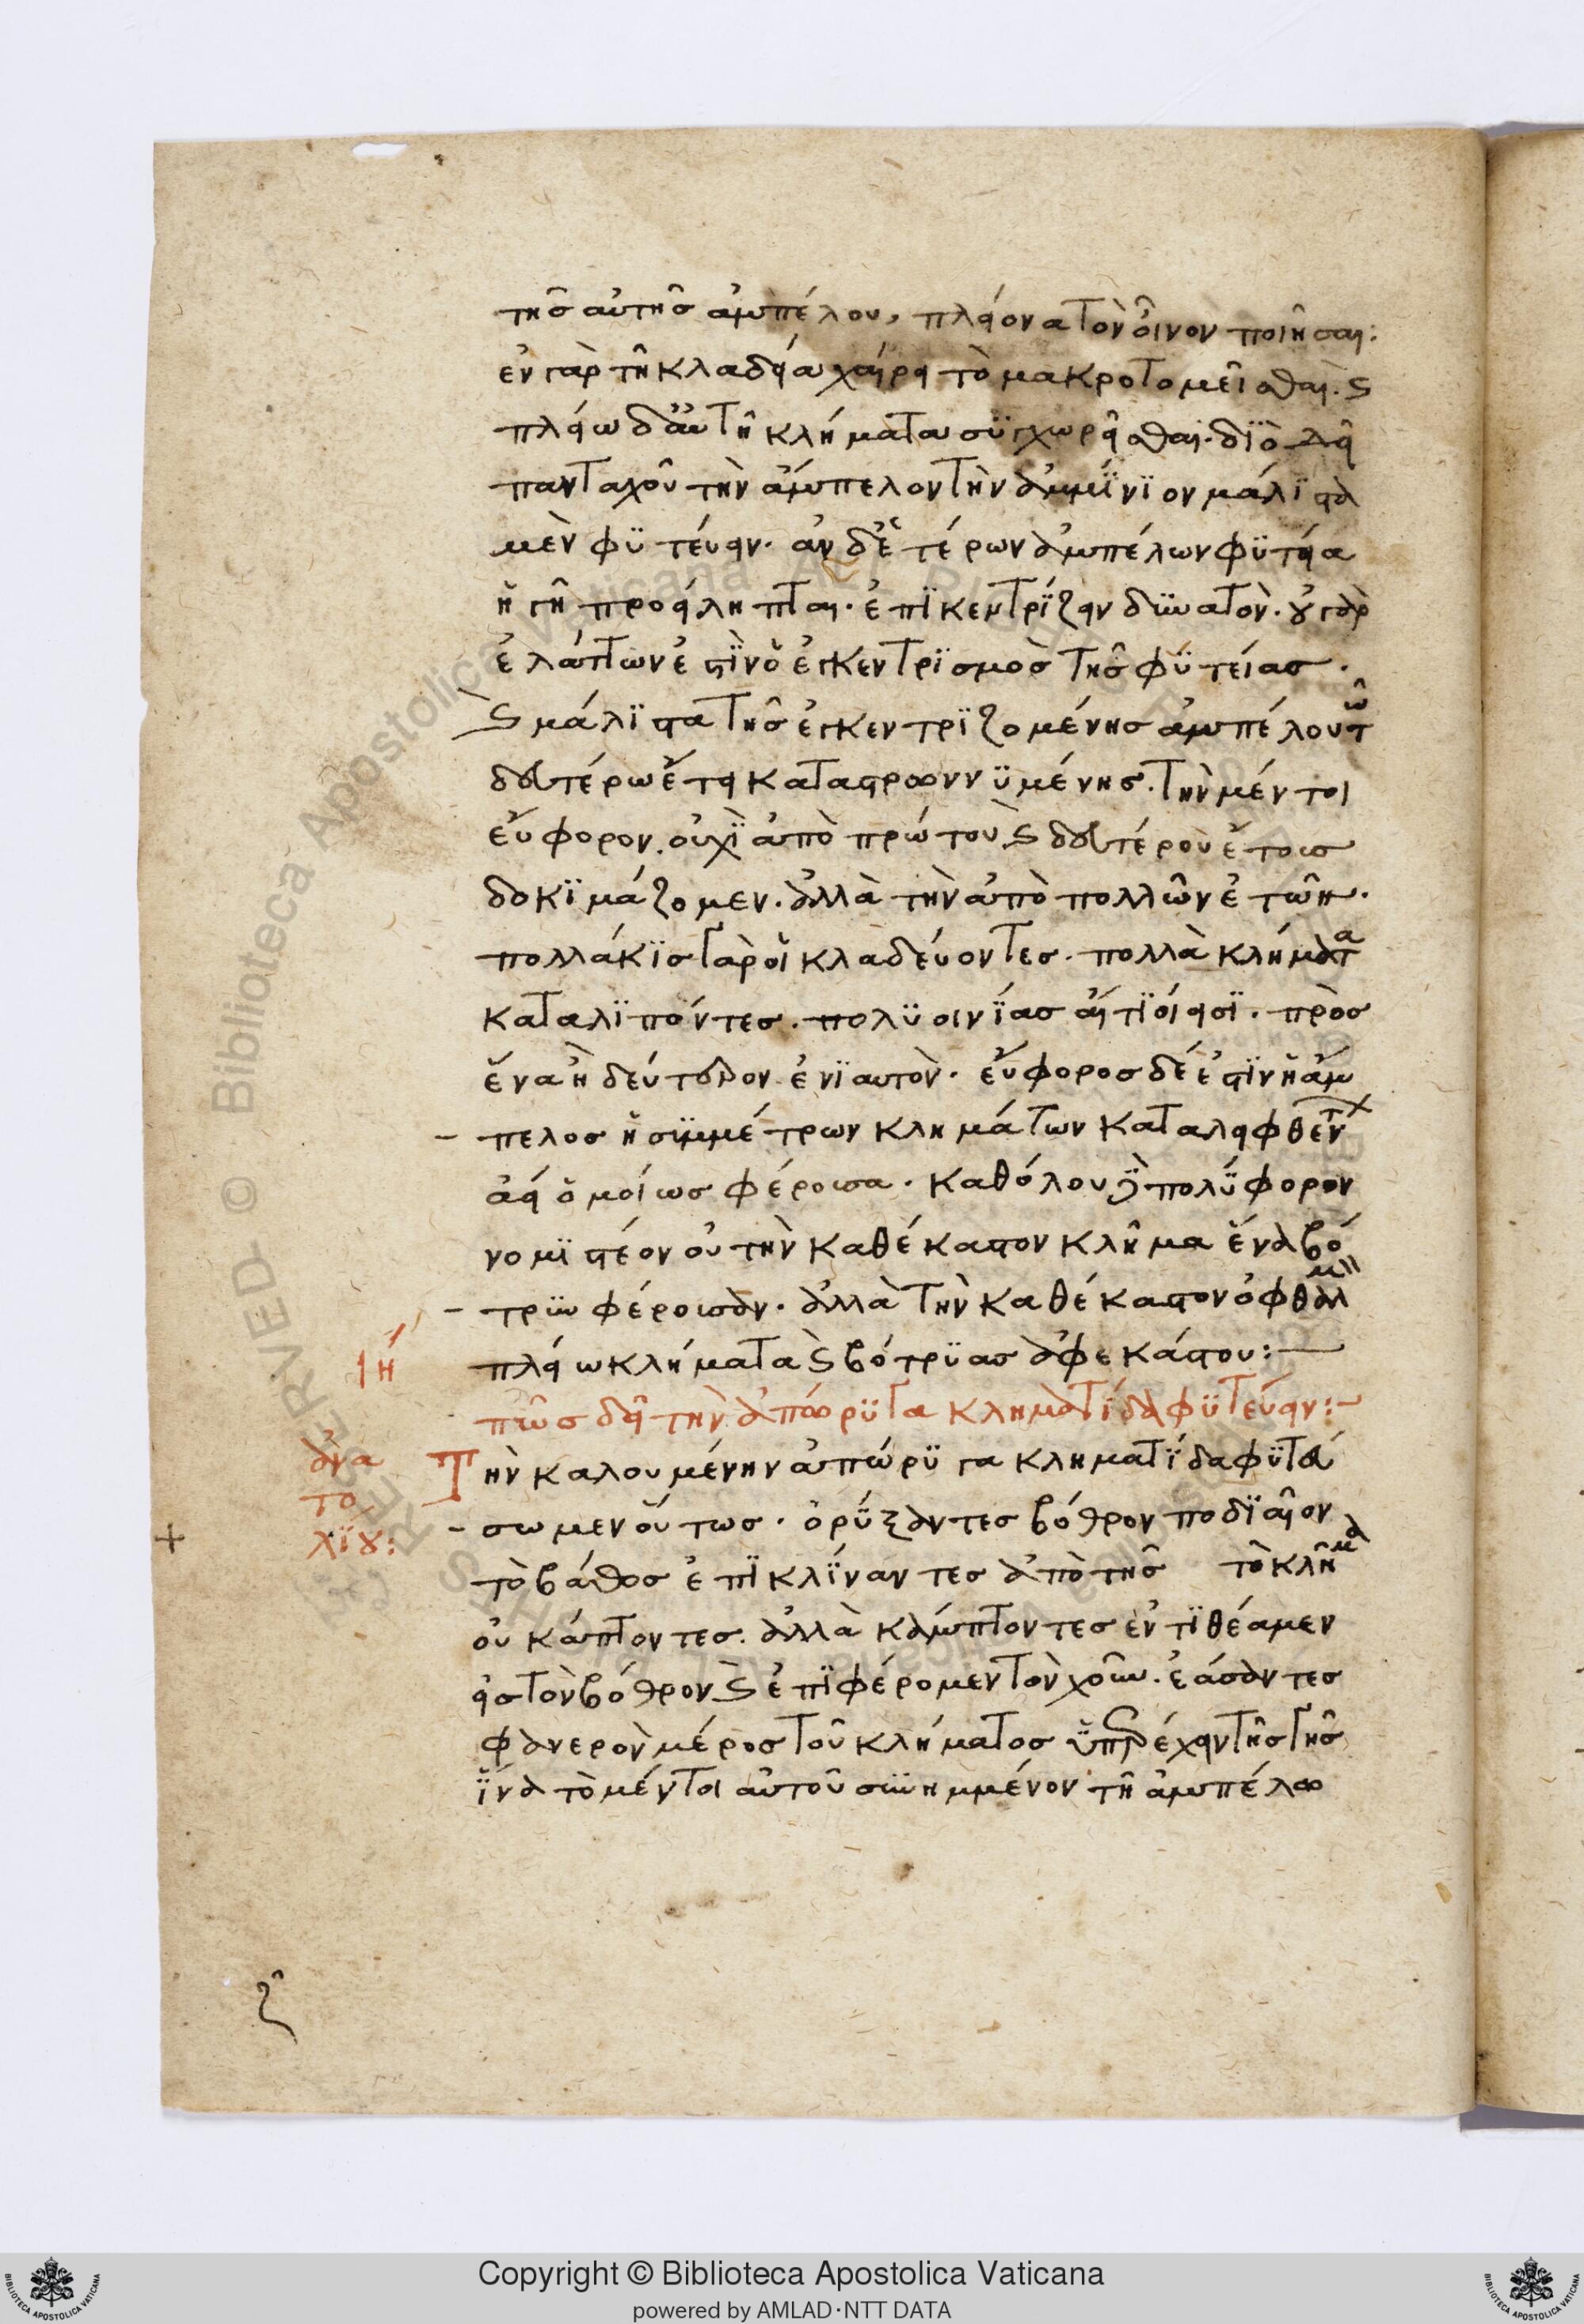 τῆς αὐτῆς ἀμπέλου, πλείονα τὸν οἶνον ποιῆσαι:
ἐν γὰρ τῆ κλαδεία χαίρει τὸ μακροτομεῖσθαι. ϗ
πλείω δ' ἀυτῆ κλήματα συγχωρεῖσθαι. διὸ δεῖ
πανταχοῦ τὴν ἄμπελον τὴν ἀμμίνιον μάλιστα
μὲν φυτεύειν. ἂν δὲ ἑτέρων ἀμπέλων φυτεία
ἡ γῆ προείληπται. ἐπικεντρίζειν δυνατὸν. οὐ γὰρ
ἐλάττων ἐστὶν ὁ ἐγκεντρισμὸς τῆς φυτείας.
ϗ μάλιστα τῆς ἐγκεντριζομένης ἀμπέλου τῶ
δευτέρω ἔτει καταστρωννυμένης. τὴν μέντοι
εὔφορον. οὐχὶ ἀπὸ πρώτου ϗ δευτέρου ἔτους
δοκιμάζομεν. ἀλλὰ τὴν ἀπὸ πολλῶν ἐτῶν.
πολλάκις γὰρ οἱ κλαδεύοντες. πολλὰ κλήματα
καταλιπόντες. πολυοινίας αἴτιοί εἰσι. πρὸς
ἕνα ἢ δεύτερον ἐνιαυτὸν. εὔφορος δέ ἐστιν ἡ ἄμ
- πελος ἡ συμμέτρων κλημάτων καταλειφθέντων
ἀεί ὁμοίως φέρουσα. καθόλου δὲ πολύφορον
νομιστέον οὐ τὴν καθέκαστον κλῆμα ἕνα βό
- τρυν φέρουσαν. ἀλλὰ τὴν καθέκαστον ὀφθαλμὸν
πλείω κλήματα ϗ βότρυας ἀφεκάστου:
ιη πῶς δεῖ τὴν ἀπώρυγα κληματίδα φυτεύειν:
ἀνα
το
λίου:
Τὴν καλουμένην ἀπώρυγα κληματίδα φυτεύ
- σωμεν οὕτως. ὀρύξαντες βόθρον ποδιαῖον
τὸ βάθος ἐπικλίναντες ἀπὸ τῆς τὸ κλῆμα
οὐ κόπτοντες. ἀλλὰ κάμπτοντες ἐντιθέαμεν
εἰς τὸν βόθρον ϗ ἐπιφέρομεν τὸν χοῦν. ἐάσαντες
φανερὸν μέρος τοῦ κλήματος ὑπερέχειν τῆς γῆς
ἵνα τὸ μέντοι αὐτοῦ συνημμένον τῆ ἀμπέλω
Copyright © Biblioteca Apostolica Vaticana
powered by AMLAD·NTT DATA